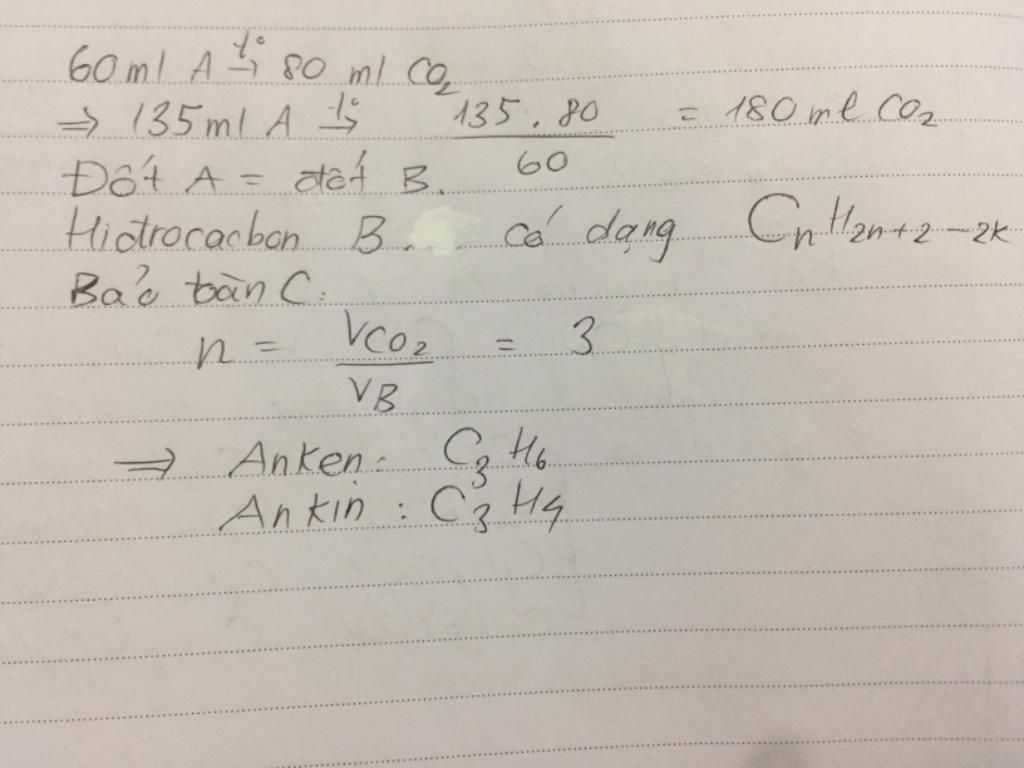 60ml A t°→ 80 ml CO₂
⇒ 135ml A t°→ 135.80/60 = 180ml CO₂
Đốt A = đốt B.
Hiđrocacbon B... có dạng CnH2n+2-2k
Bảo toàn C:
n = VCO₂/VB = 3
⇒ Anken: C₃H₆
Ankin: C₃H₄